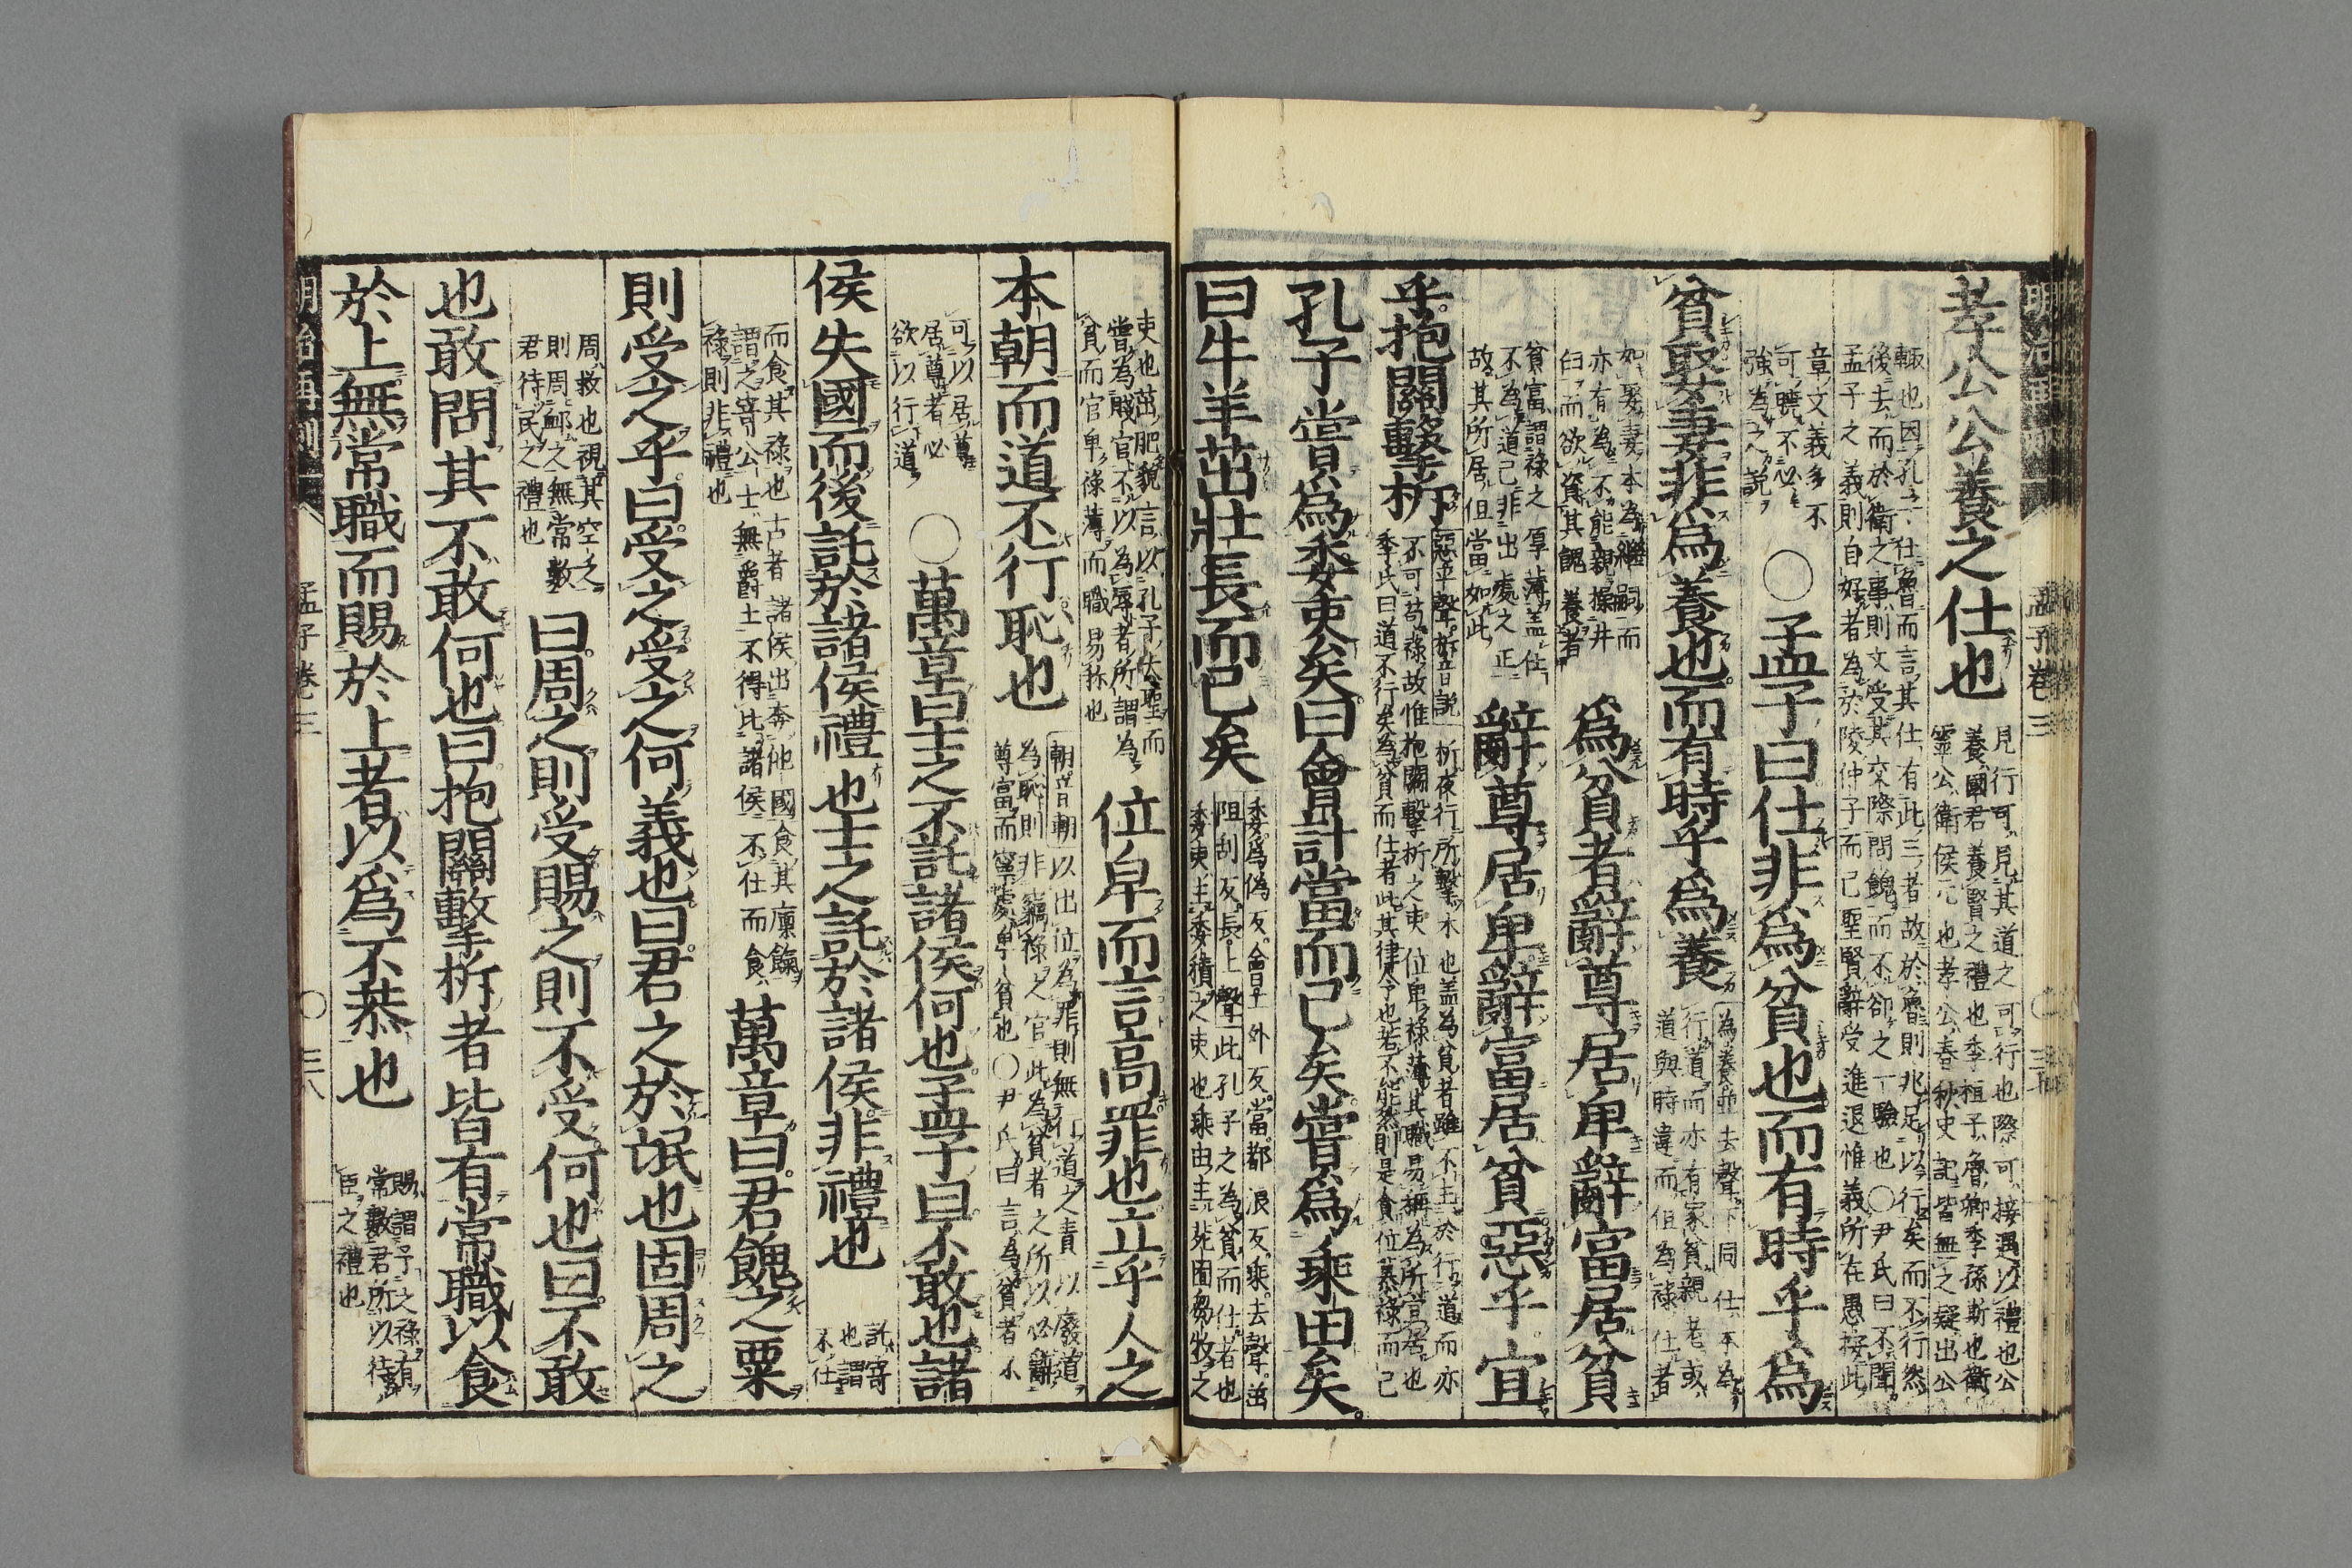 明治再刻 孟子卷三
孝公公養之仕也
見行可見其道之可行也際可接遇以禮也公
養國君養賢之禮也季桓子魯卿季孫斯也衛
靈公衛侯元也孝公春秋史記皆無之疑出公
輒也因孔子仕魯而言其仕有此三者故於魯則兆足以行矣而不行然
後去而於衛之事則又受其交際問餽而不卻之一驗也〇尹氏曰不聞
孟子之義則自好者為於陵仲子而已聖賢辭受進退惟義所在愚按此
章文義多不
可曉不必
強為之說
〇孟子曰仕非爲貧也而有時乎爲
貧娶妻非爲養也而有時乎爲養
為養並去聲下同仕本為
行道而亦有家貧親老或
道與時違而但為祿仕者
如娶妻本為繼嗣而
亦有為不能親操井
臼而欲資其餽養者
爲貧者辭尊居卑辭富居貧
貧富謂祿之厚薄蓋仕
不為道已非出處之正
故其所居但當如此
辭尊居卑辭富居貧惡乎宜
乎抱關擊柝
惡平聲柝音說 柝夜行所擊木也蓋為貧者雖不主於行道而亦
不可苟祿故惟抱關擊柝之吏位卑祿薄其職易稱為所宜居也
李氏曰道不行矣為貧而仕者此其律令也若不能然則是貪位慕祿而已
孔子嘗爲委吏矣曰會計當而已矣嘗爲乘田矣
曰牛羊茁壯長而已矣
委烏偽反會工外反當都浪反乘去聲茁
阻刮反長上聲此孔子之為貧而仕者也
委吏主委積之吏也乘田主苑囿芻牧之
吏也茁肥貌言以孔子大聖而
嘗為賤官不以為辱者所謂為
貧而官卑祿薄而職易稱也
位卑而言高罪也立乎人之
本朝而道不行恥也
朝音潮以出位為罪則無行道之責以廢道
為恥則非竊祿之官此為貧者之所以必辭
尊富而寧處卑貧也〇尹氏曰言為貧者不
可以居尊
居尊者必
欲以行道
〇萬章曰士之不託諸侯何也孟子曰不敢也諸
侯失國而後託於諸侯禮也士之託於諸侯非禮也
託寄
也謂
不仕
而食其祿也古者諸侯出奔他國食其廩餼
謂之寄公士無爵土不得比諸侯不仕而食
祿則非禮也
萬章曰君餽之粟
則受之乎曰受之受之何義也曰君之於氓也固周之
周救也視其空乏
則周卹之無常數
君待民之禮也
曰周之則受賜之則不受何也曰不敢
也敢問其不敢何也曰抱關擊柝者皆有常職以食
於上無常職而賜於上者以爲不恭也
賜謂予之祿有
常數君所以待
臣之禮也
明治再刻 孟子卷三 〇 三八